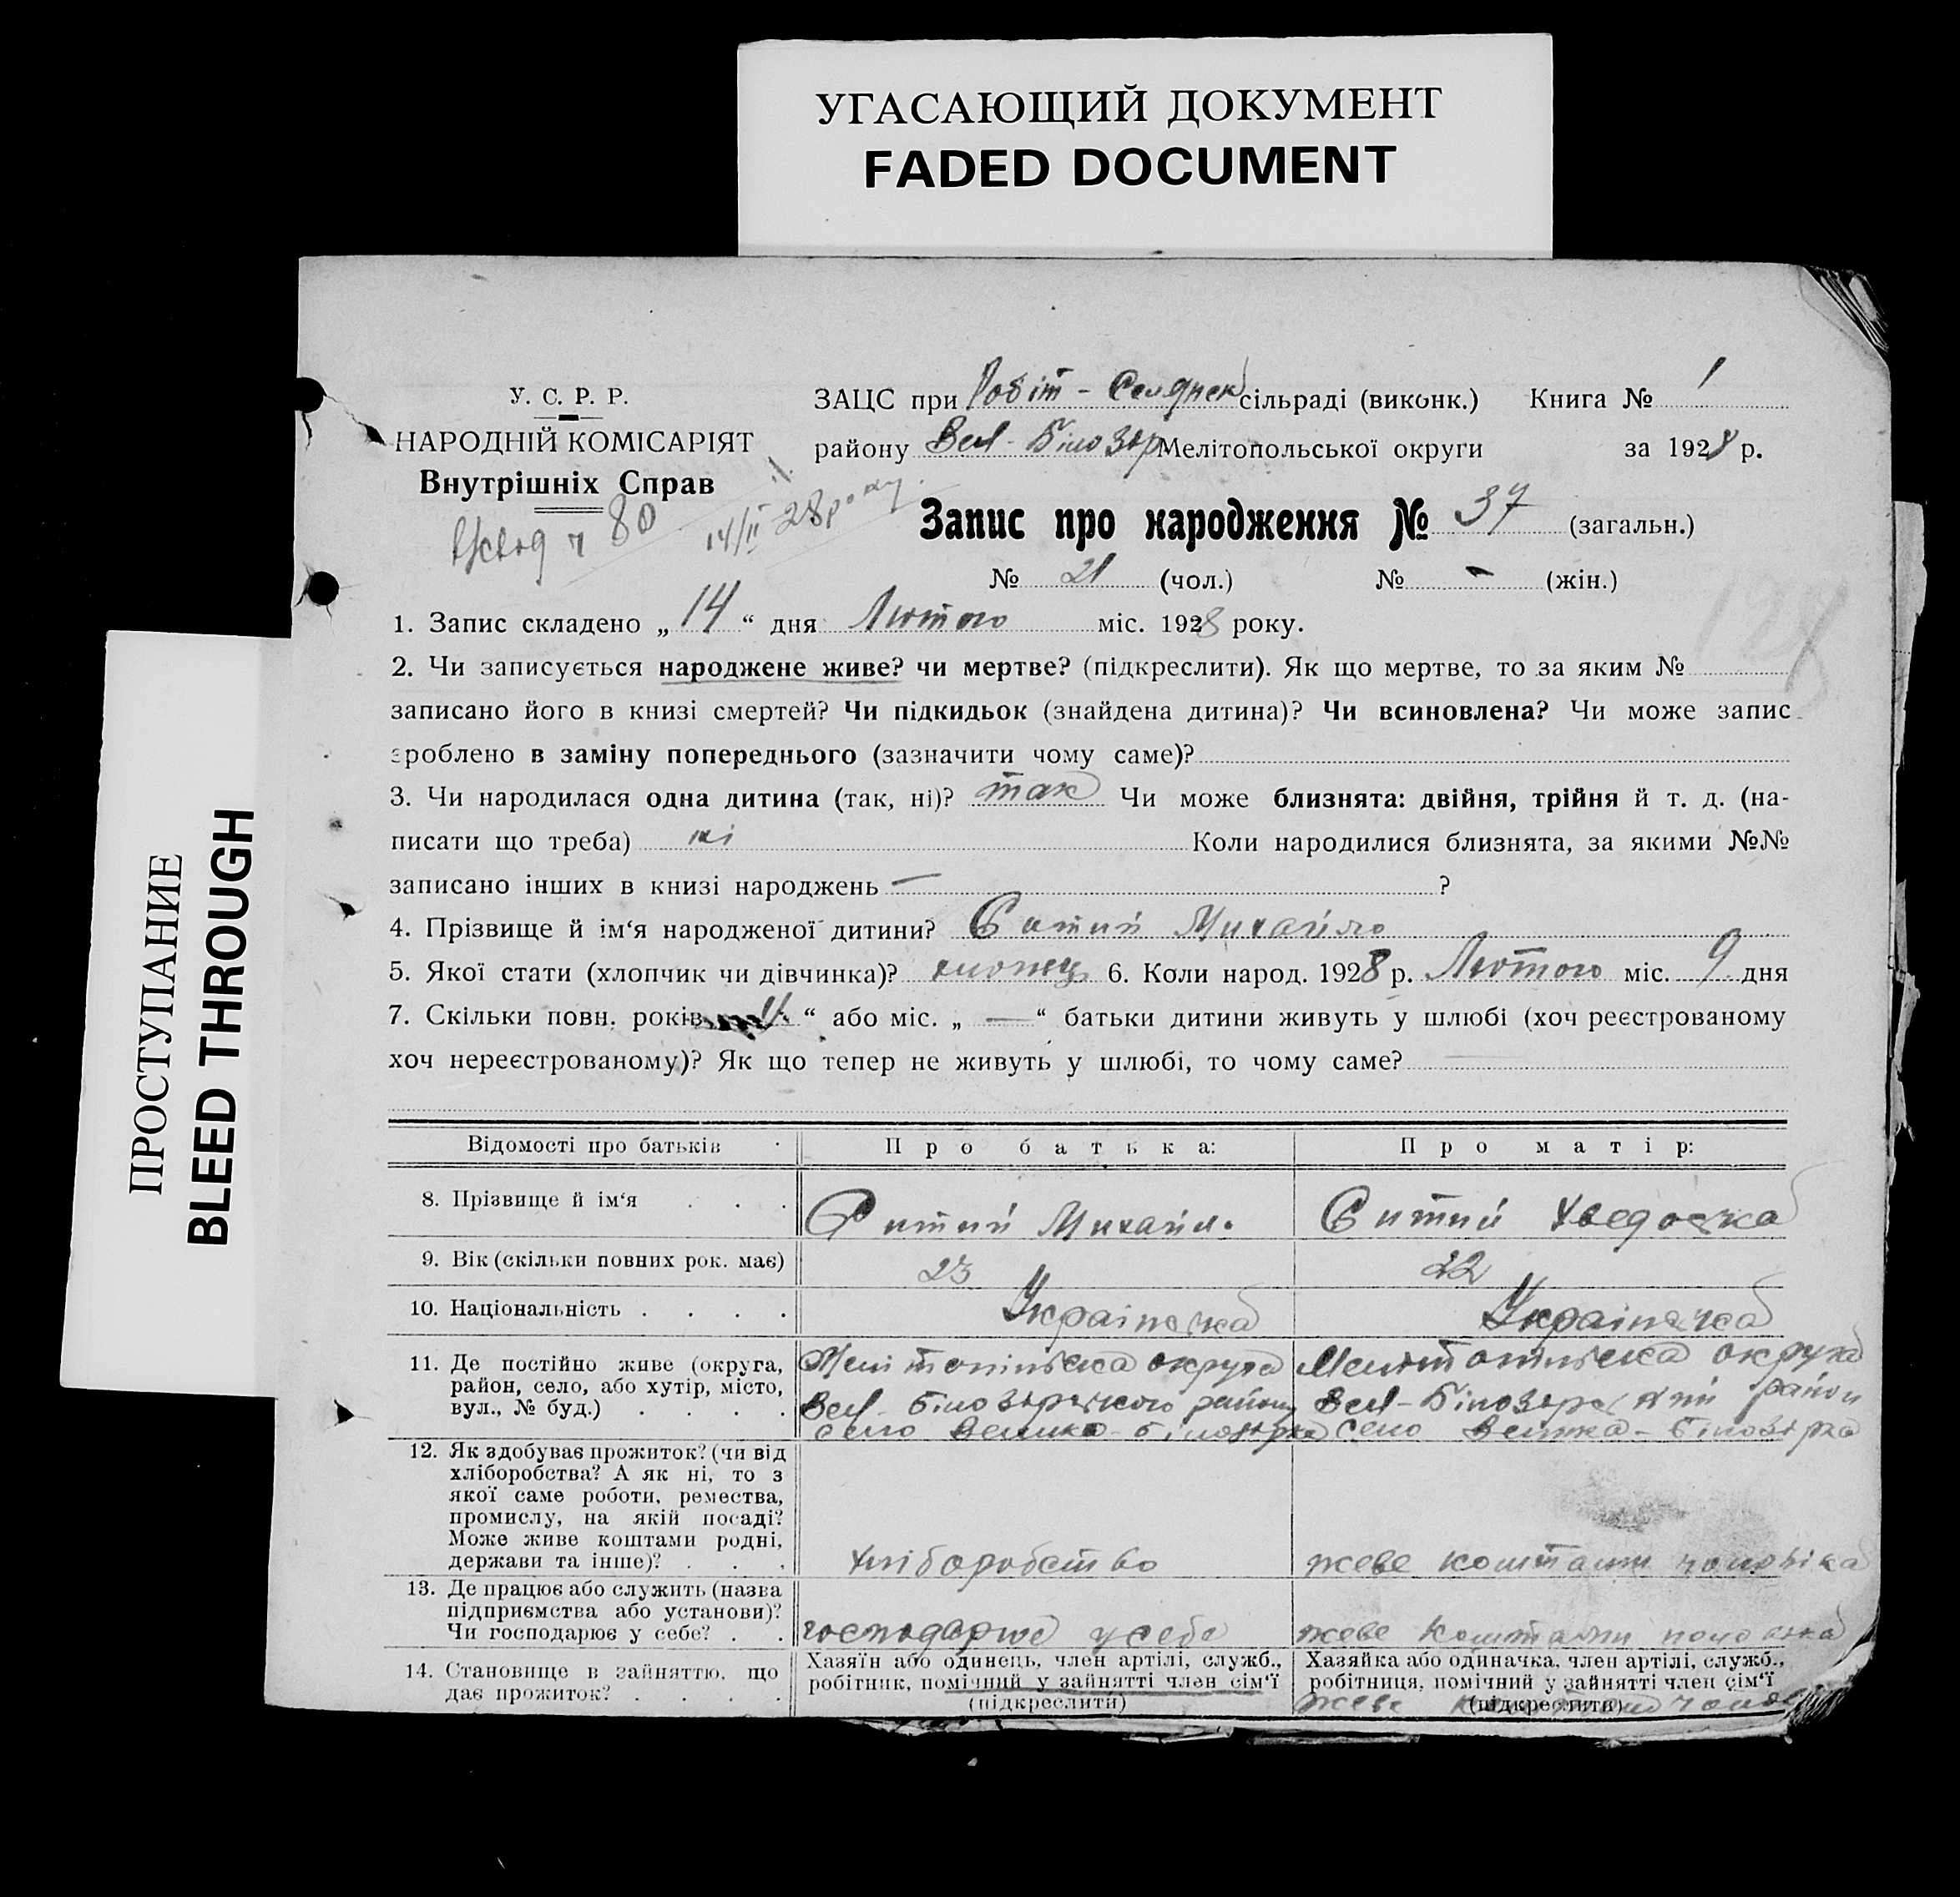 УГАСАЮЩИЙ ДОКУМЕНТ
FADED DOCUMENT
ПРОСТУПАНИЕ
BLEED THROUGH
У. С. Р. Р.
НАРОДНІЙ КОМІСАРІЯТ
Внутрішніх Справ
80 14/II 28 року.
ЗАЦС при Робіт - сільраді (виконк.) Книга № 1
району Вел - Білозір Мелітопольської округи за 1928 р.
Запис про народження № 37 (загальн.)
№ 21 (чол.) № - (жін.)
1. Запис складено „ 14 “ дня Лютого міс. 1928 року.
2. Чи записується народжене живе? чи мертве? (підкреслити). Як що мертве, то за яким №
записано його в книзі смертей? Чи підкидьок (знайдена дитина)? Чи всиновлена? Чи може запис
зроблено в заміну попереднього (зазначити чому саме)?
3. Чи народилася одна дитина (так, ні)? так Чи може близнята: двійня, трійня й т. д. (на-
писати що треба) ні Коли народилися близнята, за якими №№
записано інших в книзі народжень — ?
4. Прізвище й ім‘я народженої дитини? Ситий Михайло
5. Якої стати (хлопчик чи дівчинка)? хлопец 6. Коли народ. 1928 р. Лютого міс. 9 дня
7. Скільки повн. років “ або міс. „ — “ батьки дитини живуть у шлюбі (хоч реєстрованому
хоч нереєстрованому)? Як що тепер не живуть у шлюбі, то чому саме?
Відомості про батьків Про батька: Про матір:
8. Прізвище й ім‘я . . . Ситий Михайл. Ситий Хведоска
9. Вік (скільки повних рок. має) 23 22
10. Національність . . . . Українска Українска
11. Де постійно живе (округа, район, село, або хутір, місто, вул., № буд.) . . . .
Мелітопільска округа
Вел - Білозірского району
село Велика - Білозірка
Мелітопільска округа
Вел - Білозірский район
село Велика - Білозірка
12. Як здобуває прожиток? (чи від хліборобства? А як ні, то з якої саме роботи, ремества, промислу, на якій посаді? Може живе коштами родні, держави та інше)? . . .
хліборобство
жеве коштами чоловіка
13. Де працює або служить (назва підприємства або установи)? Чи господарює у себе? . .
господарює у себе
жеве коштами
14. Становище в зайняттю, що дає прожиток? . . . .
Хазяїн або одинець, член артілі, служб.,
робітник, помічний у зайнятті член сім‘ї
(підкреслити)
Хазяйка або одиначка, член артілі, служб.,
робітниця, помічний у зайнятті член сім‘ї
(підкреслити)
жеве